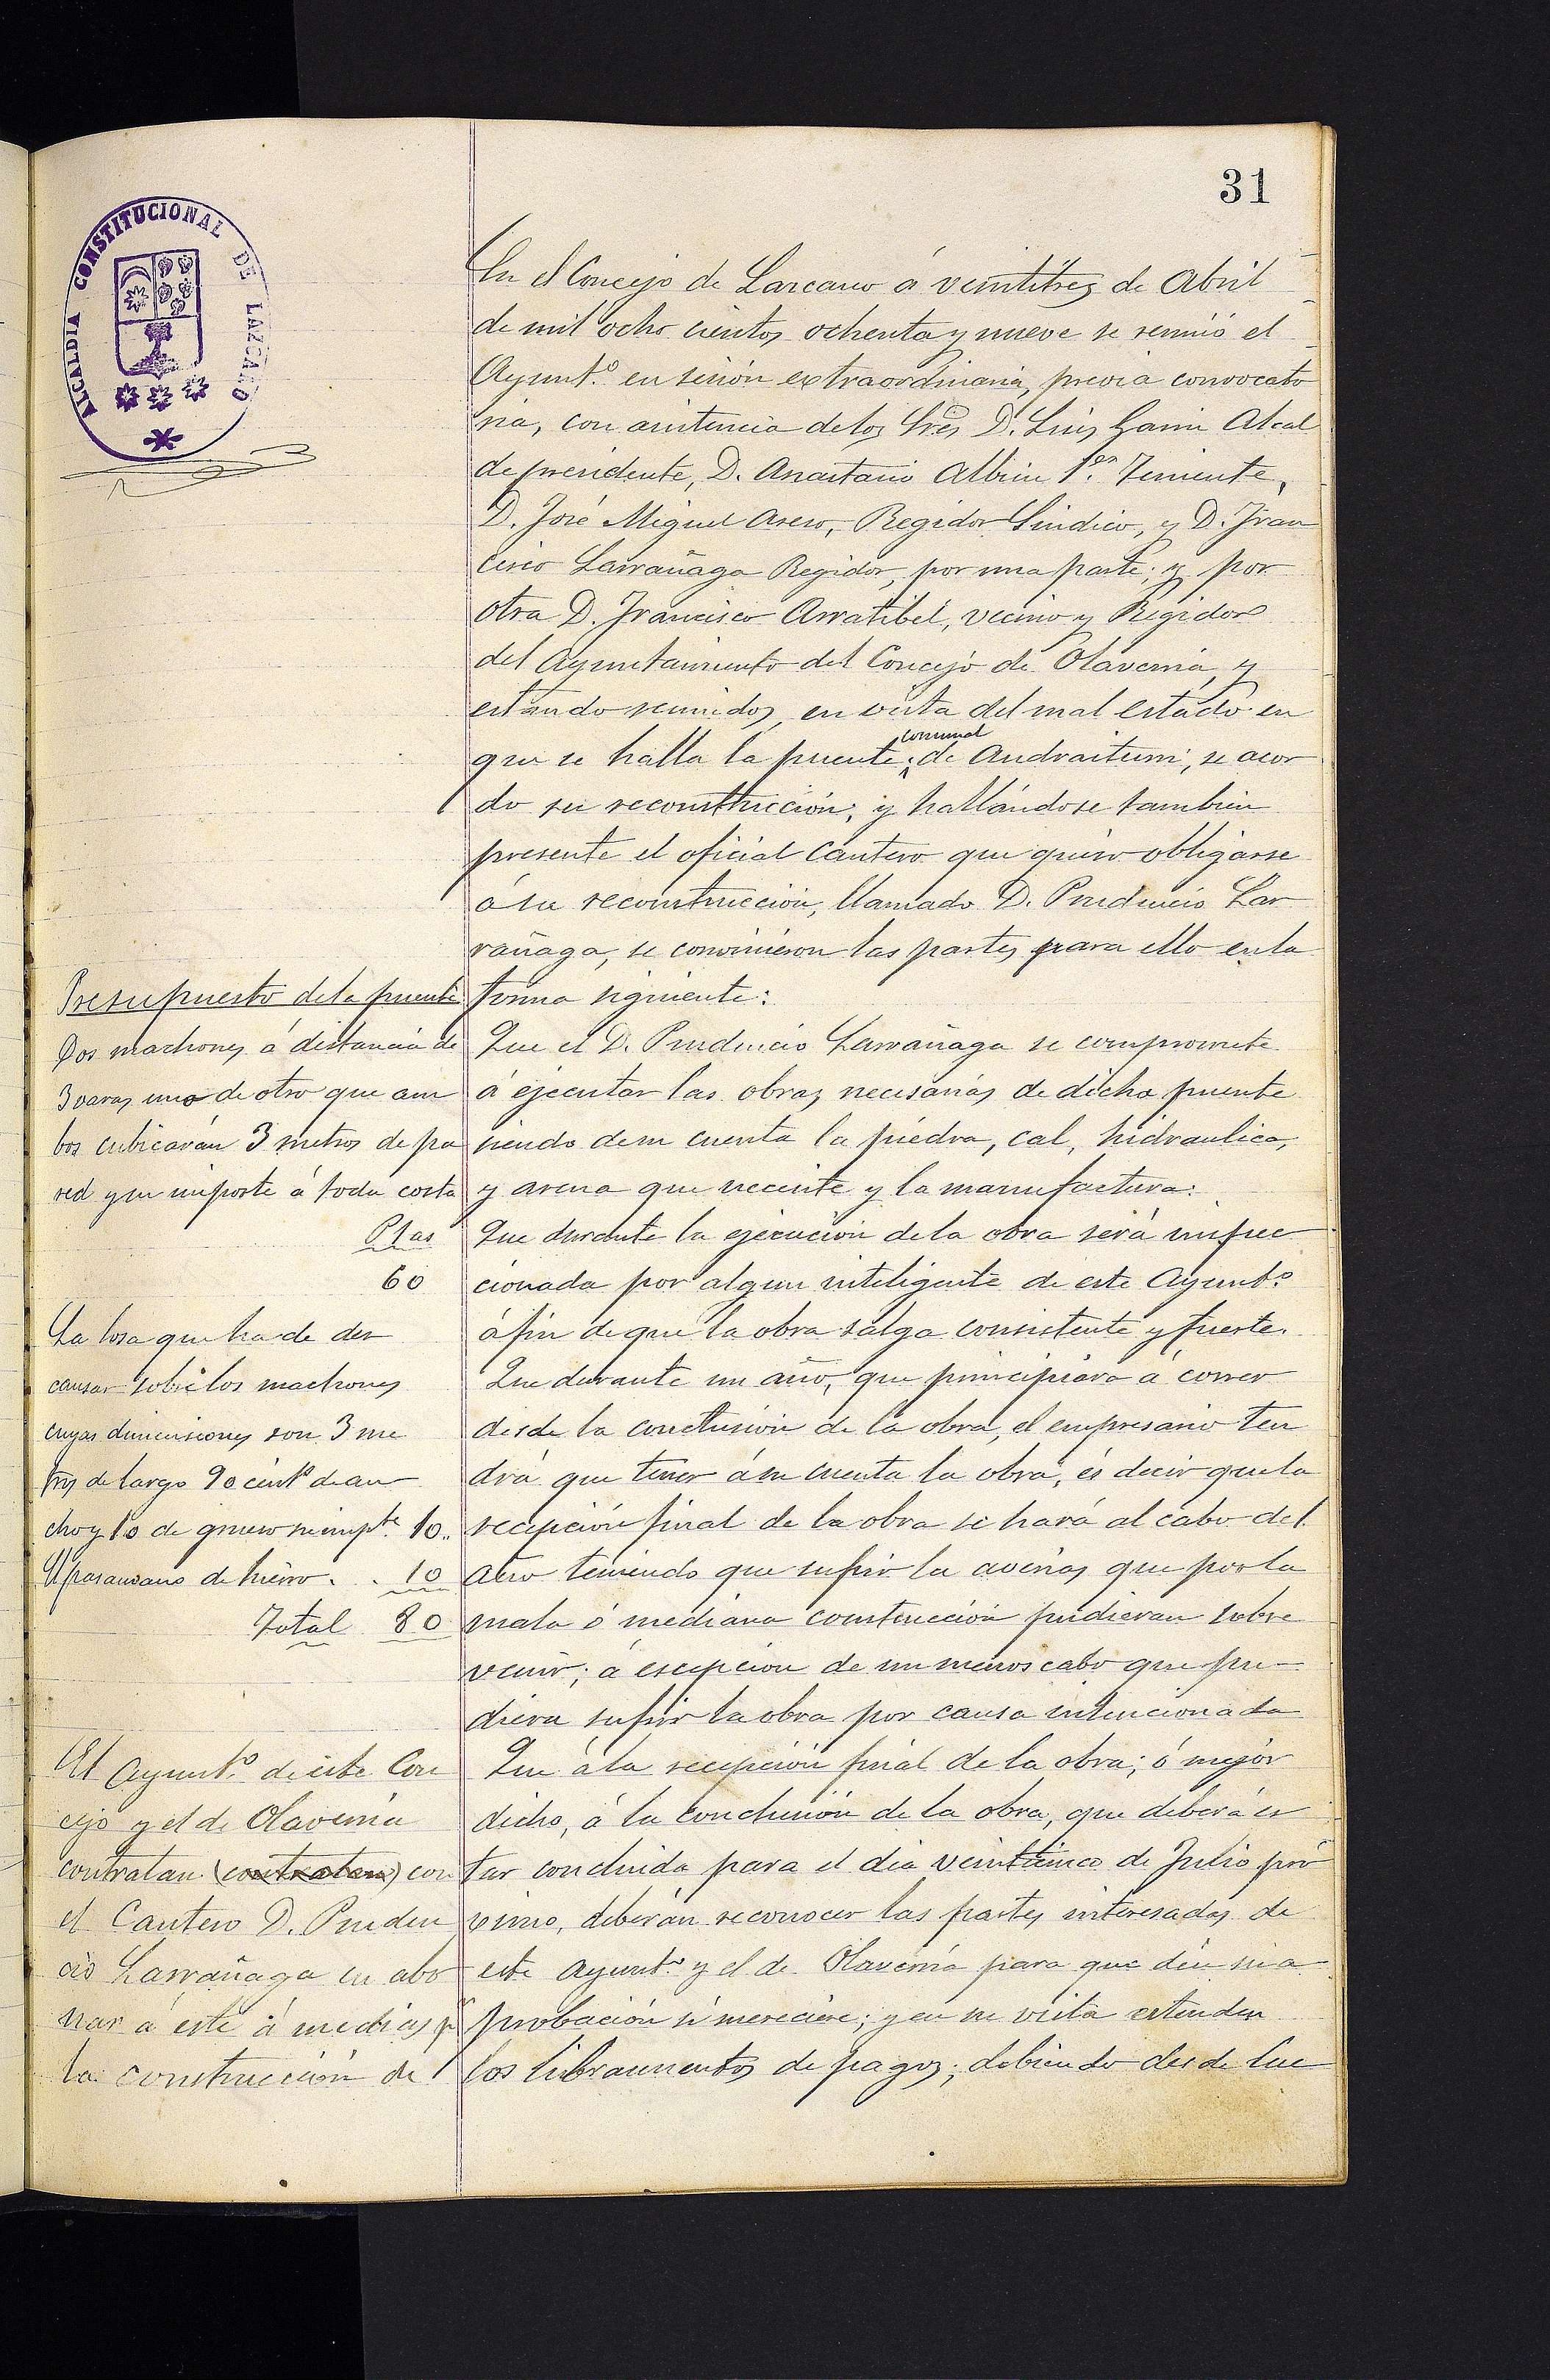 31
ALCALDIA CONSTITUCIONAL DE LAZCANO
En el Concejo de Lazcano á veintitres de Abril
de mil ocho cientos ochenta y nueve se reunió el
Ayunt.º en sesión extraordinaria, previa convocato
ria, con asistencia de los Sres D. Luis Garin Alcal
de presidente, D. Anastasio Albisu 1.er Teniente,
D. José Miguel Aseso, Regidor Sindico, y D. Fran
cisco Larrañaga Regidor, por una parte; y por
otra D. Francisco Arratibel, vecino y Regidor
del Ayuntamiento del Concejo de Olaverria, y
estando reunidos, en vista del mal estado en
que se halla la puente comunal de Andraiturri, se acor
do su reconstrucción; y hallándose tambien
presente el oficial Cantero que quiso obligarse
á su reconstrucción, llamado D. Prudencio Lar
rañaga, se convinieron las partes para ello en la
forma siguiente:
Que el D. Prudencio Larrañaga se compromete
á ejecutar las obras necesarias de dicha puente
siendo de su cuenta la piedra, cal, hidraulica,
y arena que necesite y la manufactura:
Que durante la ejecución de la obra será inspec
cionada por algun inteligente de este Ayunt.º
á fin de que la obra salga consistente y fuerte.
Que durante un año, que principiara á correr
desde la conclusión de la obra, el empresario ten
drá que tener á su cuenta la obra, és decir que la
recepción final de la obra se hará al cabo del
año teniendo que sufrir la averias que por la
mala ó mediana construcción pudieran sobre
venir; á escepcion de un menos cabo que pu-
diera sufrir la obra por causa intencionada
Que á la recepción final de la obra; ó mejor
dicho, á la conclusión de la obra, que deberá es
tar concluida para el dia veinticinco de Julio pró
ximo, deberán reconocer las partes interesadas de
este Ayunt.º y el de Olaverria para que dén su a
probación si mereciere; y en su vista estender
los libramientos de pagos; debiendo desde lue
Presupuesto de la puente
Dos machones á distancia de
3 varas uno de otro que am
bos cubicarán 3 metros de pa
red y su importe á toda costa
Ptas
60
La losa que ha de des
cansar sobre los machones
cuyas dimensiones son 3 me
tros de largo 90 cent.s de an
cho y 10 de grueso su imp.te 10..
El pasamano de hierro. . 10
Total 80
El Ayunt.º de este Con
cejo y el de Olaverria
contratan (contratan) con
el Cantero D. Pruden
cio Larrañaga en abo
nar á este á medias p.r
la construcción de